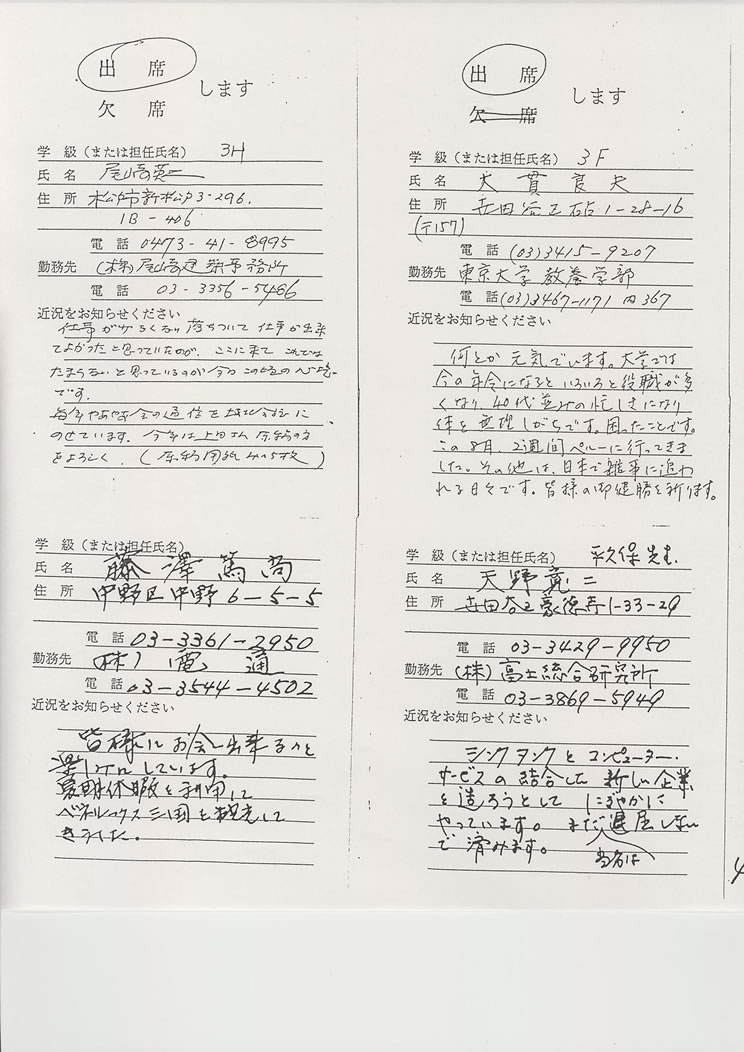 出席
欠席
します
学級（または担任氏名） 3H
氏名 尾崎英二
住所 松戸市新松戸3-296.
1B-406
電話 0473-41-8995
勤務先 (株)尾崎建築事務所
電話 03-3356-5486
近況をお知らせください
仕事が 落ちついて仕事が出来
てよかったと思っていたのが、ここに来て これでは
たまらないと思っているのが今の
です。
のせています。今年は
をよろしく. (原稿用紙 4〜5枚)
学級（または担任氏名）
氏名 藤澤篤尚
住所 中野区中野6-5-5
電話 03-3361-2950
勤務先 (株)電通
電話 03-3544-4502
近況をお知らせください
皆様にお会い出来ること
楽しみにしています。
夏期休暇を利用して
ベネルックス三国を観光して
きました。
出席
欠席
します
学級（または担任氏名） 3F
氏名 大貫良夫
住所 世田谷区砧1-28-16
(〒157)
電話 (03)3415-9207
勤務先 東京大学教養学部
電話 (03)3467-1171 内367
近況をお知らせください
何とか元気でいます。大学では
今の年令になるといろいろと役職が多
くなり、40代並みの忙しさになり
体を無理しがちです。困ったことです。
この8月、2週間ペルーに行ってきま
した。その他は、日本で雑事に追わ
れる日々です。皆様の御健勝を祈ります。
学級（または担任氏名） 平久保先生
氏名 天野寛二
住所 世田谷区豪徳寺1-33-29
電話 03-3429-9950
勤務先 (株)富士総合研究所
電話 03-3869-5949
近況をお知らせください
シンクタンクとコンピューター・
サービスの結合した新しい企業
を造ろうとして にぎやかに
やっています。まだ退屈しない
で済みます。
当分は
4